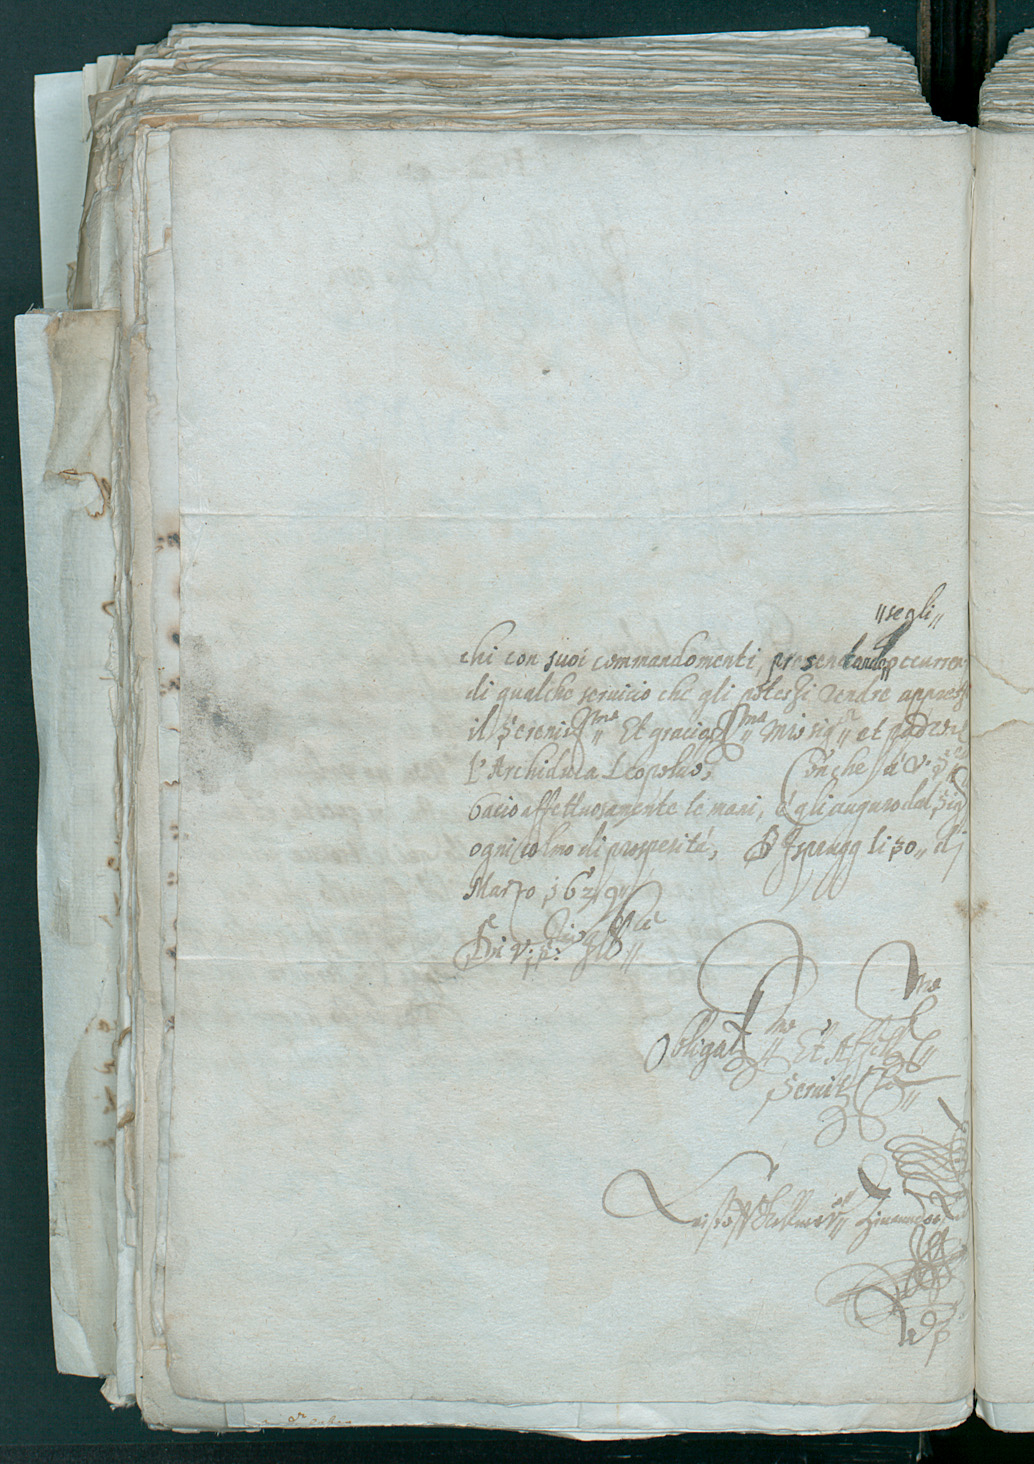 "segli"
chi con suoi commandomenti, presentando occurren
di qualche servicio che gli potessi rendre appress
il Sereniss.mo Et gracioss.mo Mio sig.r et padron
L'Archiduca Leopoldo, Con che á V. S.
bacio affettuosamente le mani, é gli auguro dal Sig.
ogni colmo di prosperitá, D'Ispruqg li 30 di
Marzo 1629
Di V: S:
Obligat.mo Et Aff.mo
Servit.re